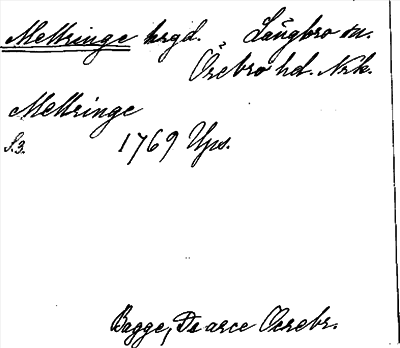 Mellringe hrgd. Längbro sn.
Örebro hd. Nrk.
Mellringe
S. 3. 1769 Ups.
Bagge, De arce Oerebr.